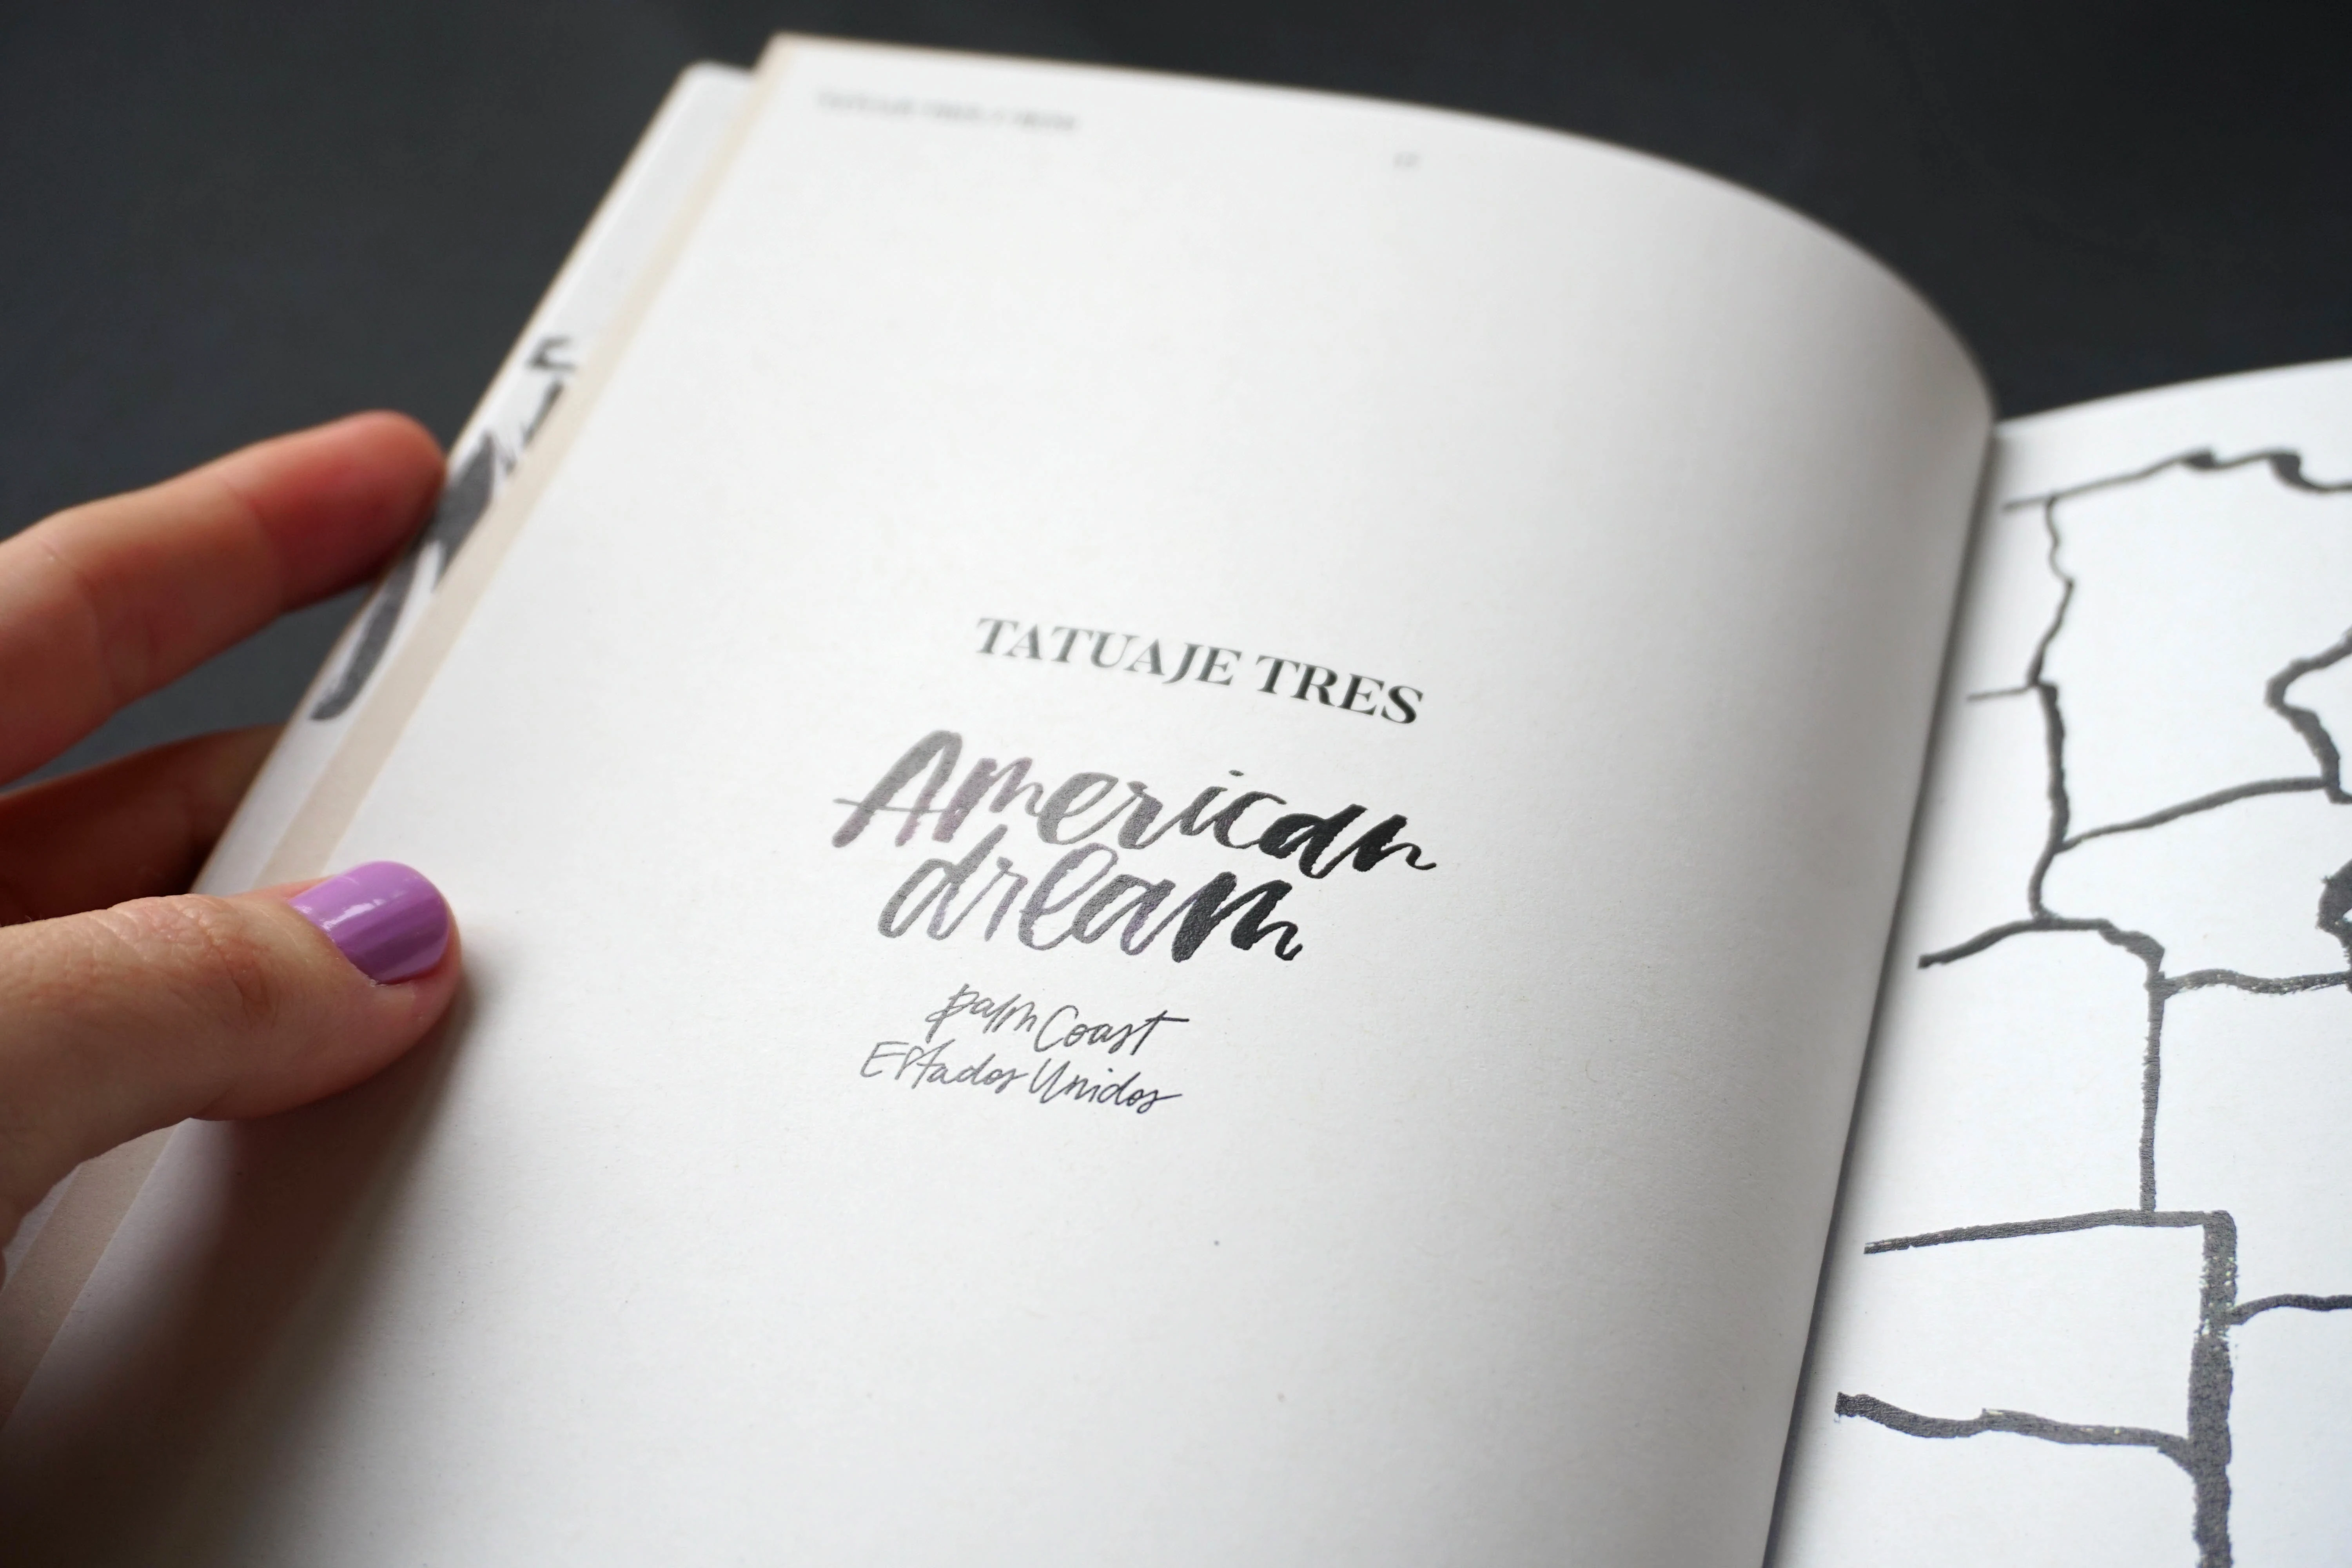 TATUAJE TRES
American
dream
palm Coast
Estados Unidos